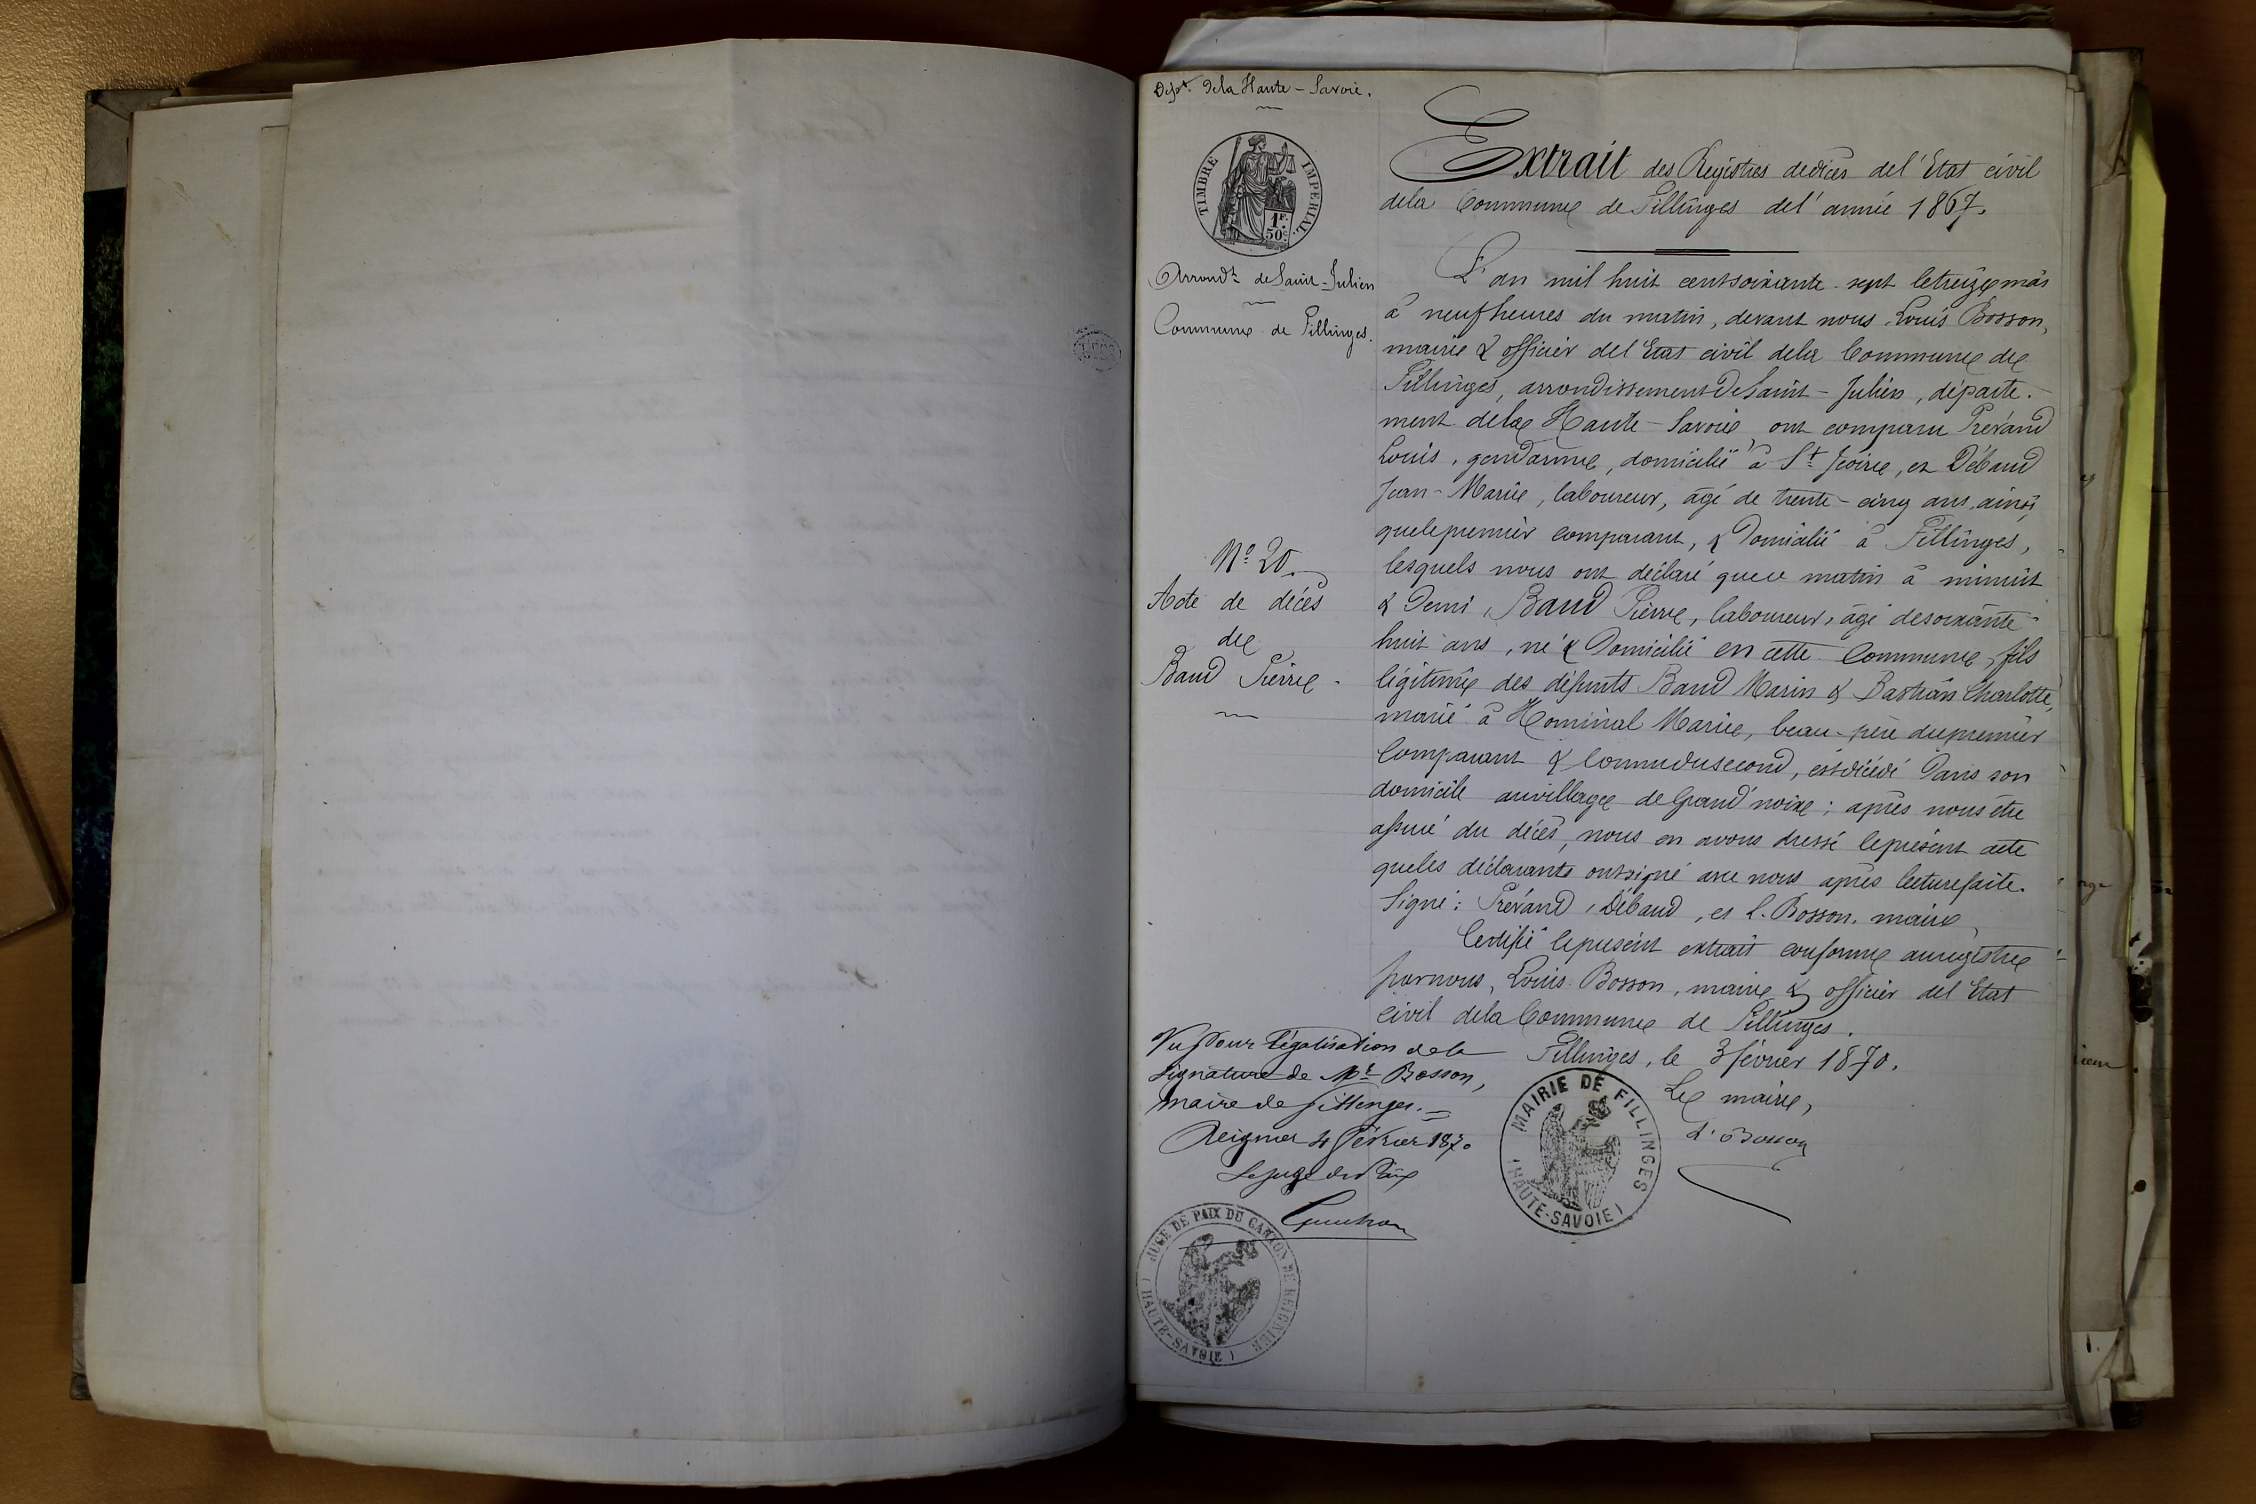 Dept. de la Haute-Savoie.
TIMBRE IMPERIAL
1F. 50c
Arrondt. de Saint-Julien
Commune de Fillinges.
Extrait des Registres de décès de l'Etat civil
de la Commune de Fillinges de l'année 1867.
L'an mil huit cent soixante-sept le treize mars
à neuf heures du matin, devant nous Louis Bosson,
maire & officier de l'Etat civil de la Commune de
Fillinges, arrondissement de Saint-Julien, départe-
ment de la Haute-Savoie, ont comparu Prévand
Louis, gendarme, domicilié à St. Jeoire, et Débaud
Jean-Marie, laboureur, âgé de trente-cinq ans, ainsi
que le premier comparant, & domicilié à Fillinges,
lesquels nous ont déclaré que ce matin à minuit
& demi, Baud Pierre, laboureur, âgé de soixante-
huit ans, né & domicilié en cette Commune, fils
légitime des défunts Baud Marin & Bastian Charlotte,
marié à Hominal Marie, beau-père du premier
Comparant & Connu du second, est décédé dans son
domicile au village de Grand'noix ; après nous être
assuré du décès, nous en avons dressé le présent acte
que les déclarants ont signé avec nous après lecture faite.
Signé : Prévand, Débaud, et L. Bosson. maire,
Certifié le présent extrait conforme au registre
par nous, Louis Bosson, maire & officier de l'Etat
civil de la Commune de Fillinges.
Fillinges, le 3 février 1870.
Le maire,
L. Bosson
MAIRIE DE FILLINGES
(HAUTE-SAVOIE)
No. 20.
Acte de décès
de
Baud Pierre.
Vu pour légalisation de la
signature de Mr. Bosson,
maire de fillinges.
Reignier 4 février 1870
Le juge de Paix
JUGE DE PAIX DU CANTON DE REIGNIER
(HAUTE-SAVOIE)